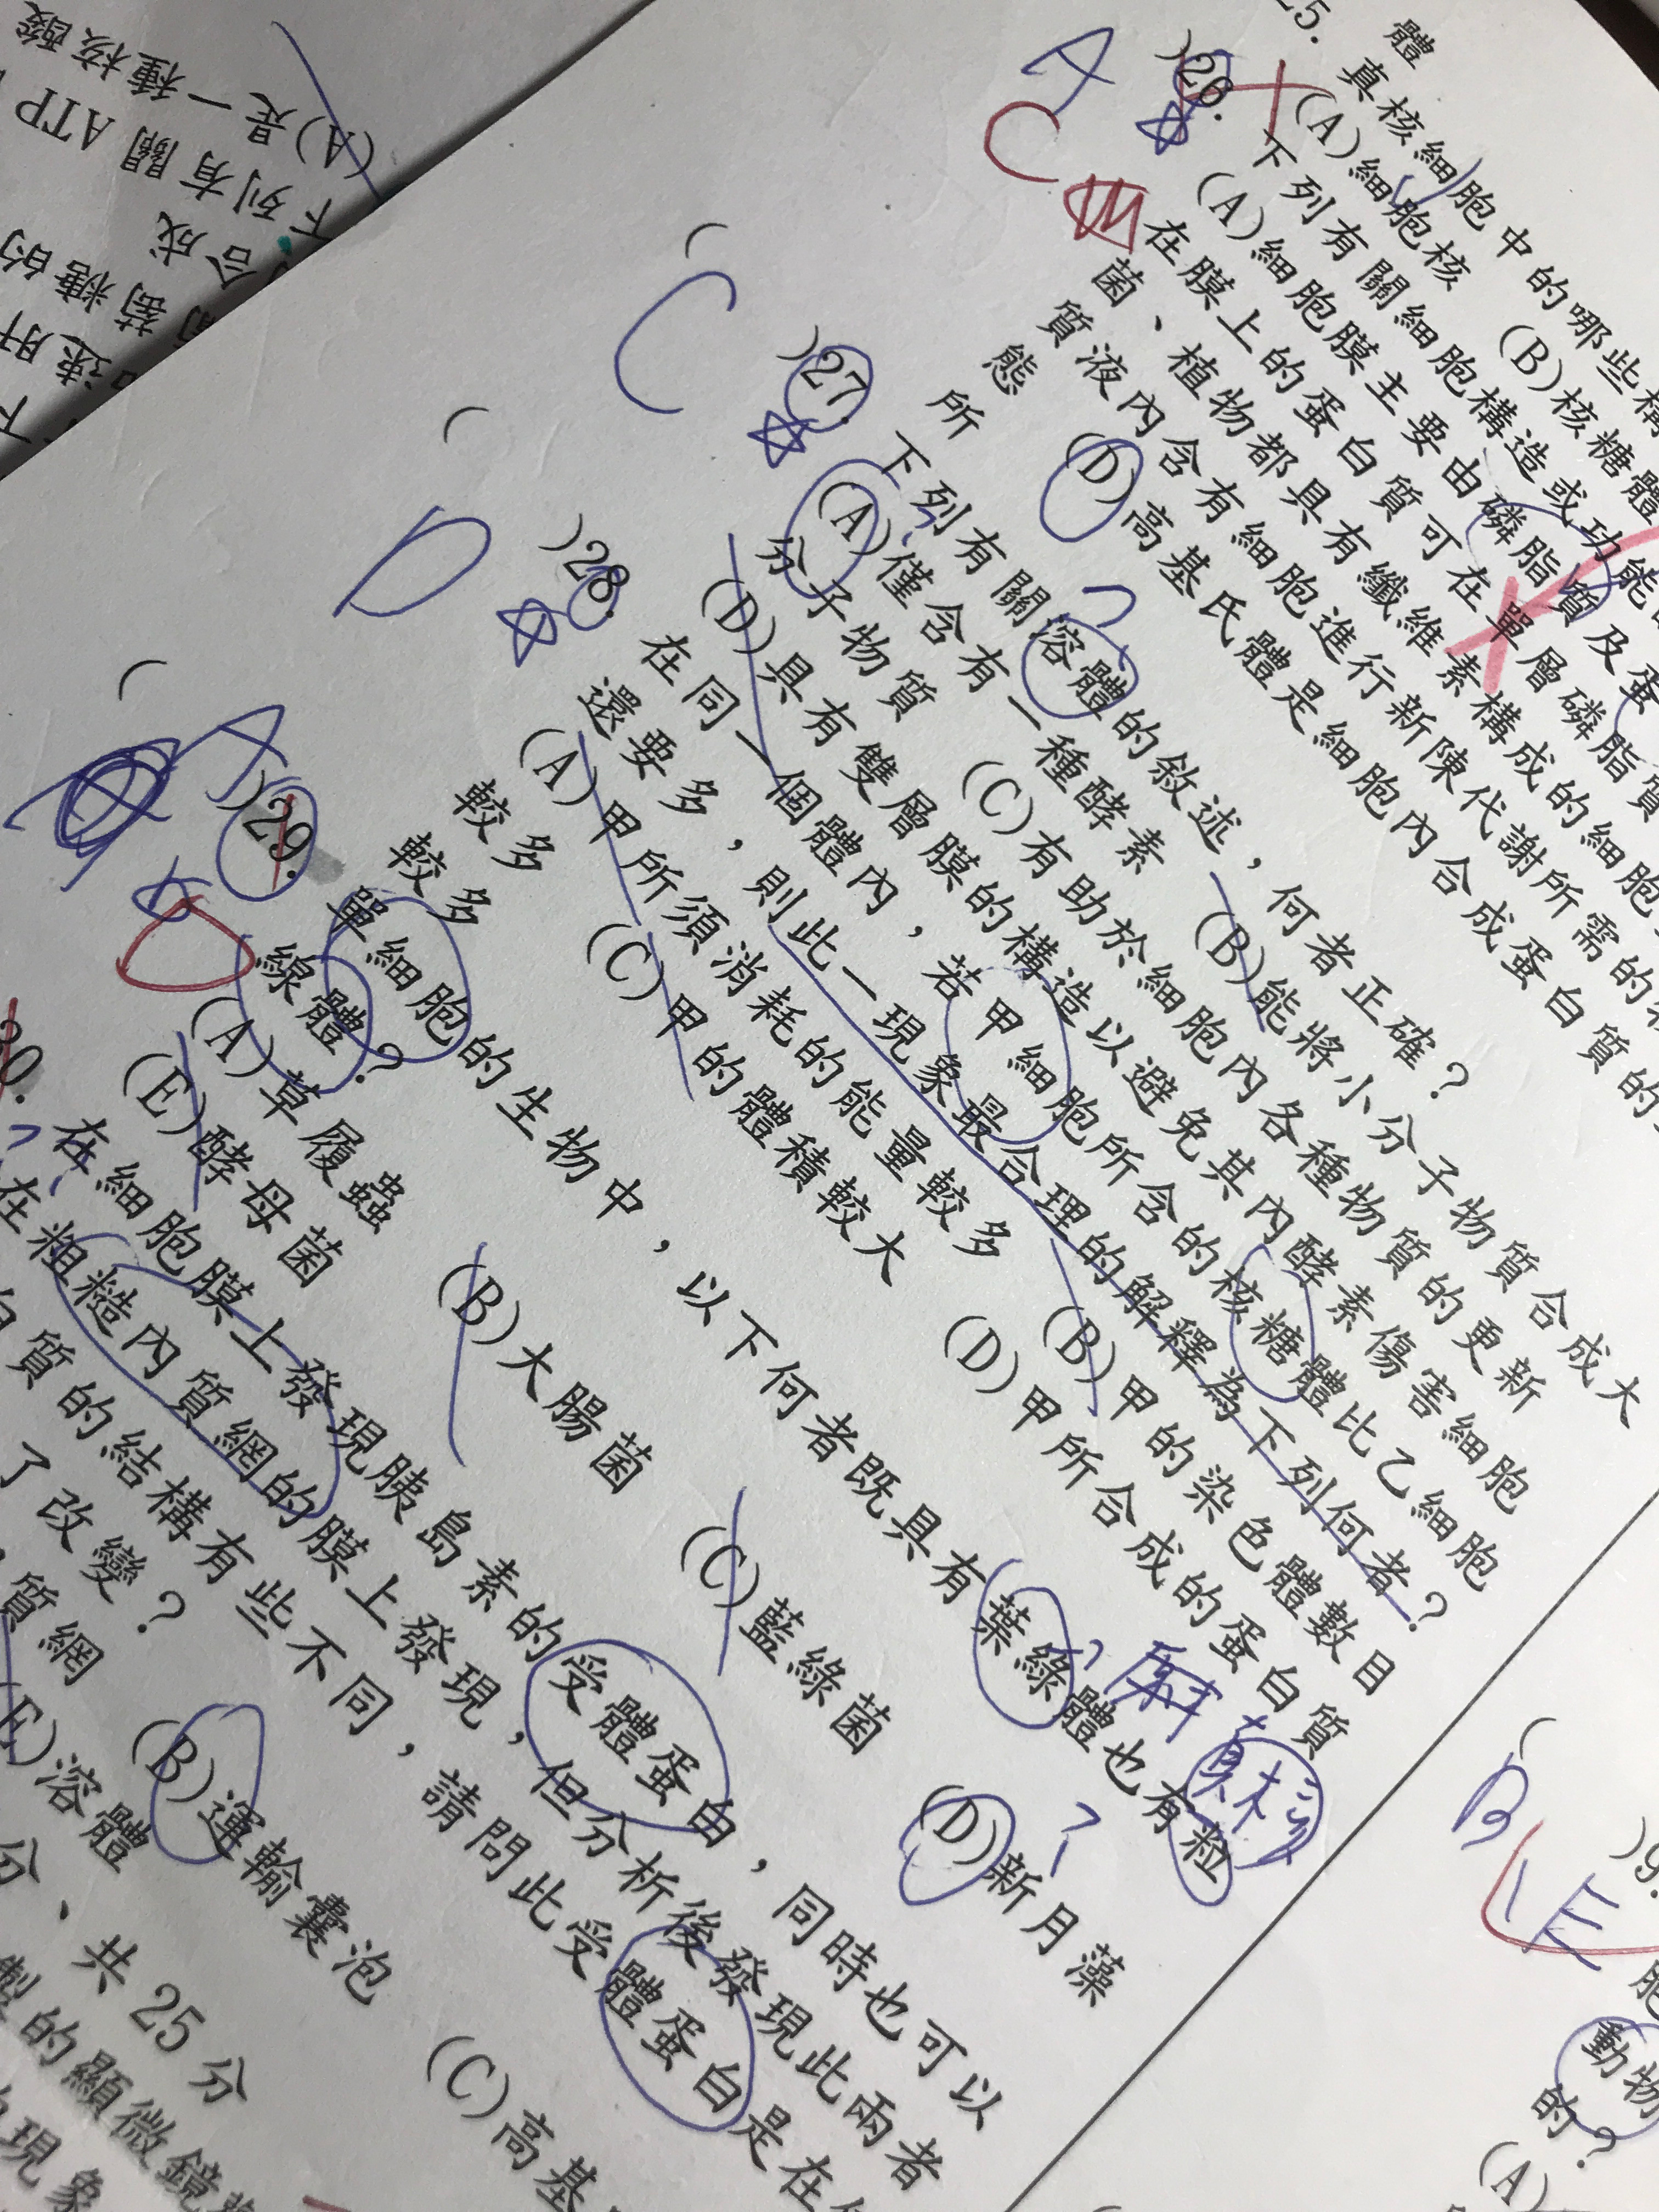 體
25. 真核細胞中的哪些構
(A)細胞核 (B)核糖體
A C )26. 下列有關細胞構造或功能
(A)細胞膜主要由磷脂質及蛋
在膜上的蛋白質可在單層磷脂質
菌、植物都具有纖維素構成的細胞
質液內含有細胞進行新陳代謝所需的
態 (D)高基氏體是細胞內合成蛋白質的
所
( C )27. 下列有關溶體的敘述,何者正確?
(A)僅含有一種酵素 (B)能將小分子物質合成大
分子物質 (C)有助於細胞內各種物質的更新
(D)具有雙層膜的構造以避免其內酵素傷害細胞
( D )28. 在同一個體內,若甲細胞所含的核糖體比乙細胞
還要多,則此一現象最合理的解釋為下列何者?
(A)甲所須消耗的能量較多 (B)甲的染色體數目
較多 (C)甲的體積較大 (D)甲所合成的蛋白質
較多
( A D )29. 單細胞的生物中,以下何者既具有葉綠體也有粒
線體?
(A)草履蟲 (B)大腸菌 (C)藍綠菌 (D)新月藻
(E)酵母菌
真核
30. 在細胞膜上發現胰島素的受體蛋白,同時也可以
在粗糙內質網的膜上發現,但分析後發現此兩者
白質的結構有些不同,請問此受體蛋白是在
了改變?
質網 (B)運輸囊泡 (C)高基
(E)溶體
分、共 25 分
製的顯微鏡
現象
( B E )9.
胞
動物
的?
(A)
(A)是一種核酸
下列有關 ATP
合成
葡萄糖的
達肝
下